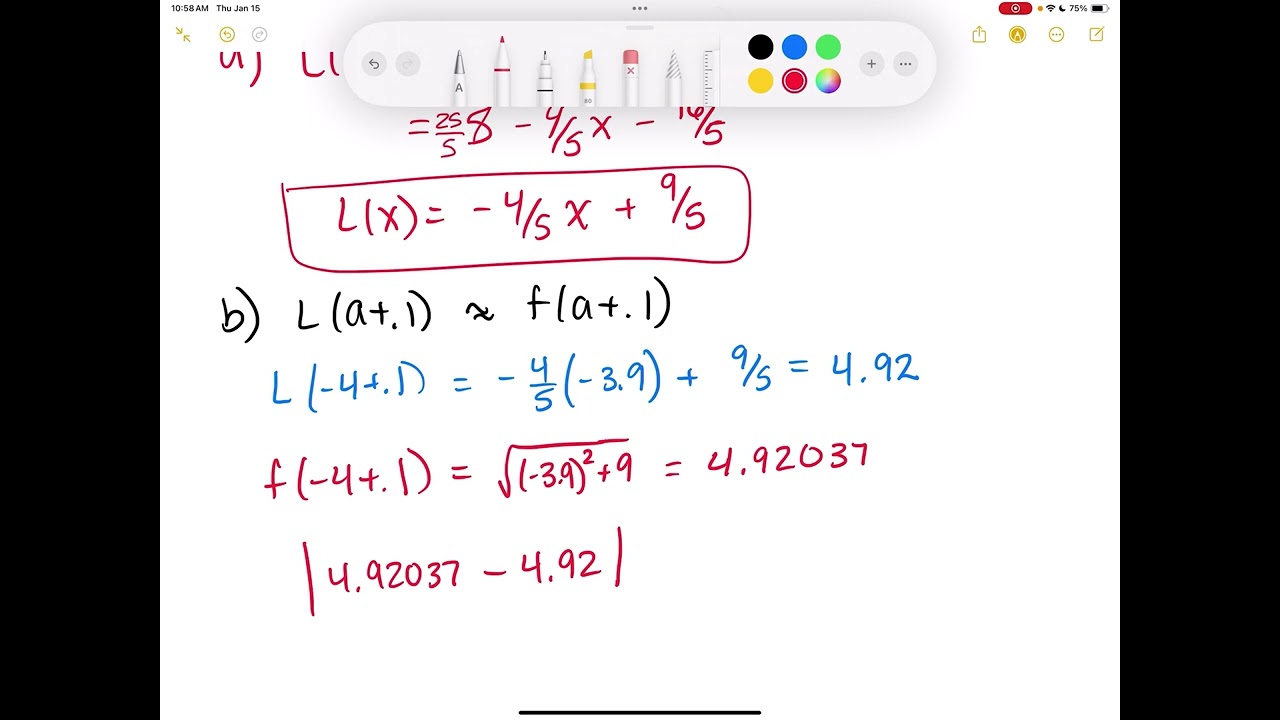 10:58 AM Thu Jan 15
75%
A
80
a) L(
= 25/5 8 - 4/5 x - 16/5
L(x) = - 4/5 x + 9/5
b) L(a+.1) ≈ f(a+.1)
L(-4+.1) = - 4/5 (-3.9) + 9/5 = 4.92
f(-4+.1) = √(-3.9)² + 9 = 4.92037
|4.92037 - 4.92|